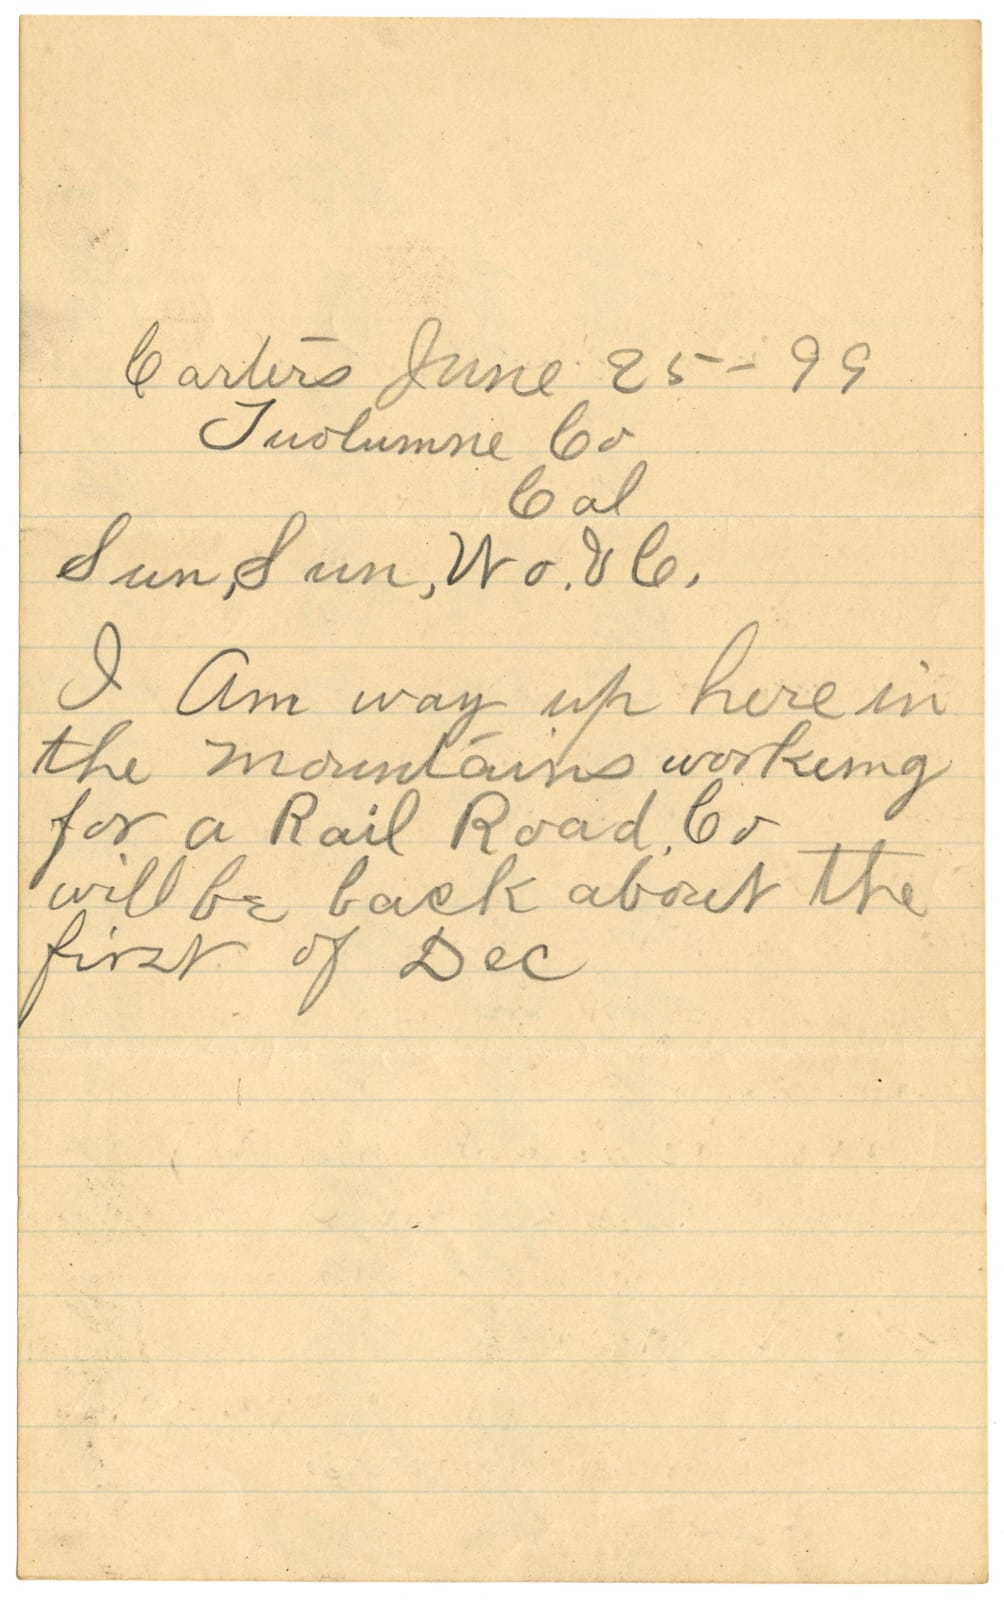 Carters June 25 - 99
Tuolumne Co
Cal
Sun, Sun, Wo. & Co.
I Am way up here in
the mountains working
for a Rail Road, Co
will be back about the
first of Dec